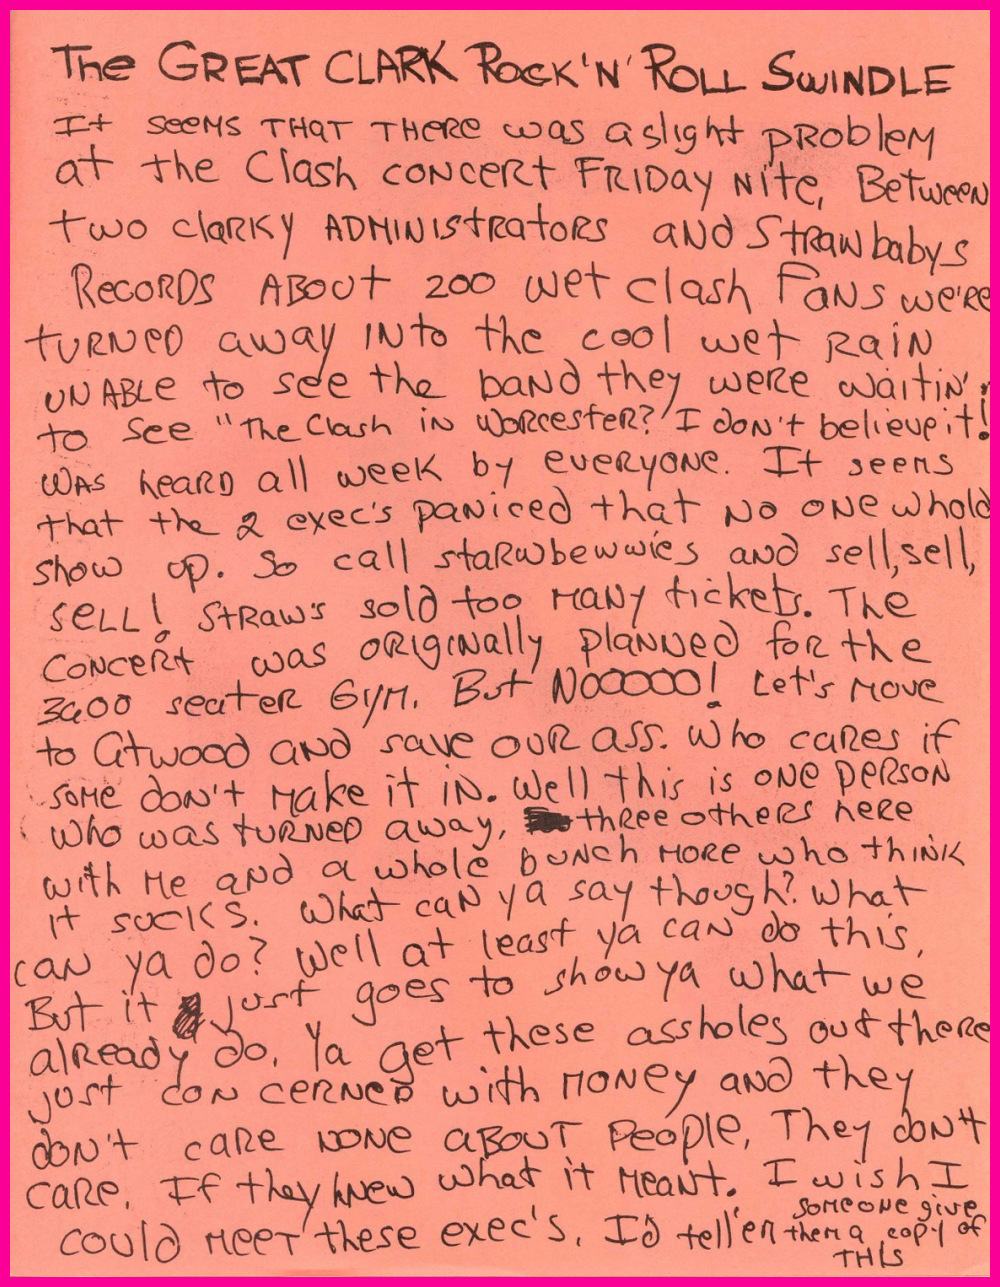 The GREAT CLARK ROCK'N' ROLL SWINDLE
It seems THAT THERE was a slight pROblem
at the Clash concert FRIDAY Nite, Between
two clarky ADMINIStRatORS and Strawbabys
Records ABOUt 200 wet clash Fans we're
turned away INto the cool wet RaiN
UNABLE to see the band they were waitin'.
to see "The Clash in Worcester? I don't believe it!
was heard all week by everyone. It seems
that the 2 exec's paniced that no one whold
show up. So call starwbewwies and sell, sell,
SELL! Straw's sold too many tickets. The
concert was originally planned for the
3000 seater Gym. But NOOOOO! Let's move
to Atwood and save our ass. Who cares if
some don't make it in. Well this is one person
who was turned away, three others here
with me and a whole bunch more who think
it sucks. What can ya say though? What
can ya do? Well at least ya can do this,
But it just goes to show ya what we
already do. Ya get these assholes out there
just concerned with money and they
don't care none about people, They don't
care. If they knew what it meant. I wish I
could meet these exec's. I'd tell'em
someone give
them a copy of
THIS